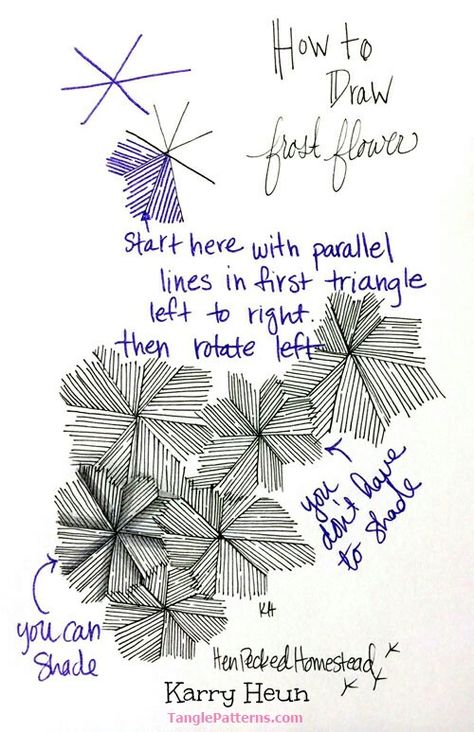 How to
Draw
frost flower
Start here with parallel
lines in first triangle
left to right...
then rotate left
you
don't have
to shade
you can
shade
KH
HenPeckedHomestead
Karry Heun
TanglePatterns.com